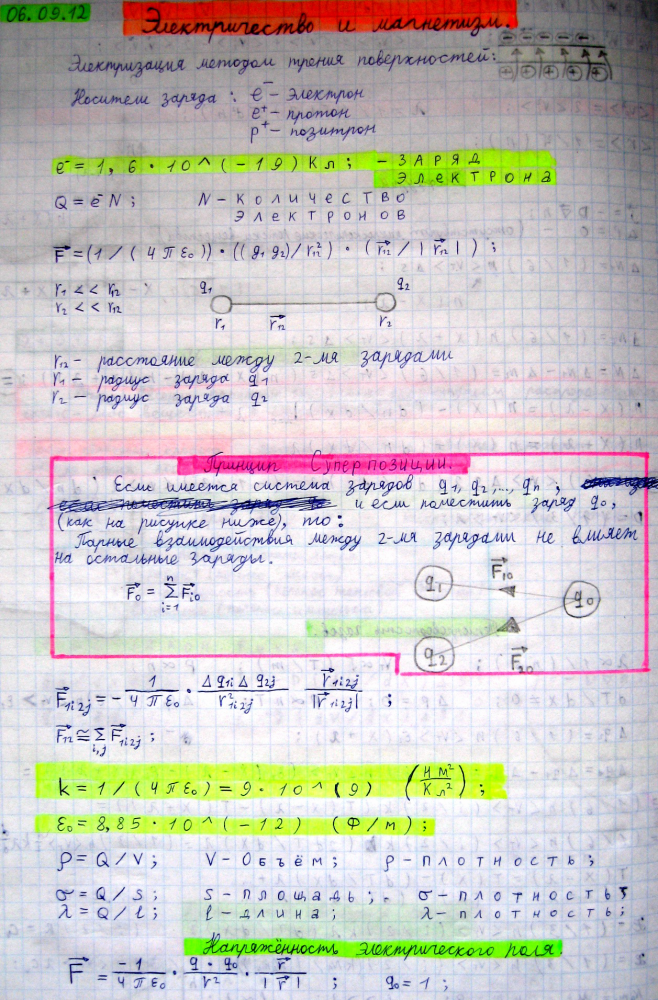 06.09.12
Электричество и магнетизм.
Электризация методом трения поверхностей:
Носители заряда: e⁻ – электрон
e⁺ – протон
p⁺ – позитрон
e⁻ = 1,6 · 10^(-19) Кл; – заряд
электрона
Q = e⁻N; N – количество
электронов
F⃗ = (1/(4πε₀)) · ((q₁q₂)/r₁₂²) · (r⃗₁₂/|r⃗₁₂|);
r₁ << r₁₂
r₂ << r₁₂
q₁ q₂
r₁ r⃗₁₂ r₂
r₁₂ – расстояние между 2-мя зарядами
r₁ – радиус заряда q₁
r₂ – радиус заряда q₂
Принцип Суперпозиции.
Если имеется система зарядов q₁, q₂, ..., qₙ,
и если поместить заряд q₀,
(как на рисунке ниже), то:
Парные взаимодействия между 2-мя зарядами не влияет
на остальные заряды.
F⃗₀ = Σⁿᵢ₌₁ F⃗ᵢ₀
q₁ F⃗₁₀ q₀
q₂ F⃗₂₀
F⃗₁ᵢ₂ⱼ = - 1/(4πε₀) · Δq₁ᵢΔq₂ⱼ/r²₁ᵢ₂ⱼ r⃗₁ᵢ₂ⱼ/|r⃗₁ᵢ₂ⱼ| ;
F⃗₁₂ ≅ Σᵢ,ⱼ F⃗₁ᵢ₂ⱼ ;
k = 1/(4πε₀) = 9 · 10^(9) (Н м²/Кл²);
ε₀ = 8,85 · 10^(-12) (Ф/м);
ρ = Q/V; V – объём; ρ – плотность;
σ = Q/s; s – площадь; σ – плотность;
λ = Q/l; l – длина; λ – плотность;
Напряжённость электрического поля.
F⃗ = -1/(4πε₀) · q · q₀/r² · r⃗/|r⃗| ; q₀ = 1;